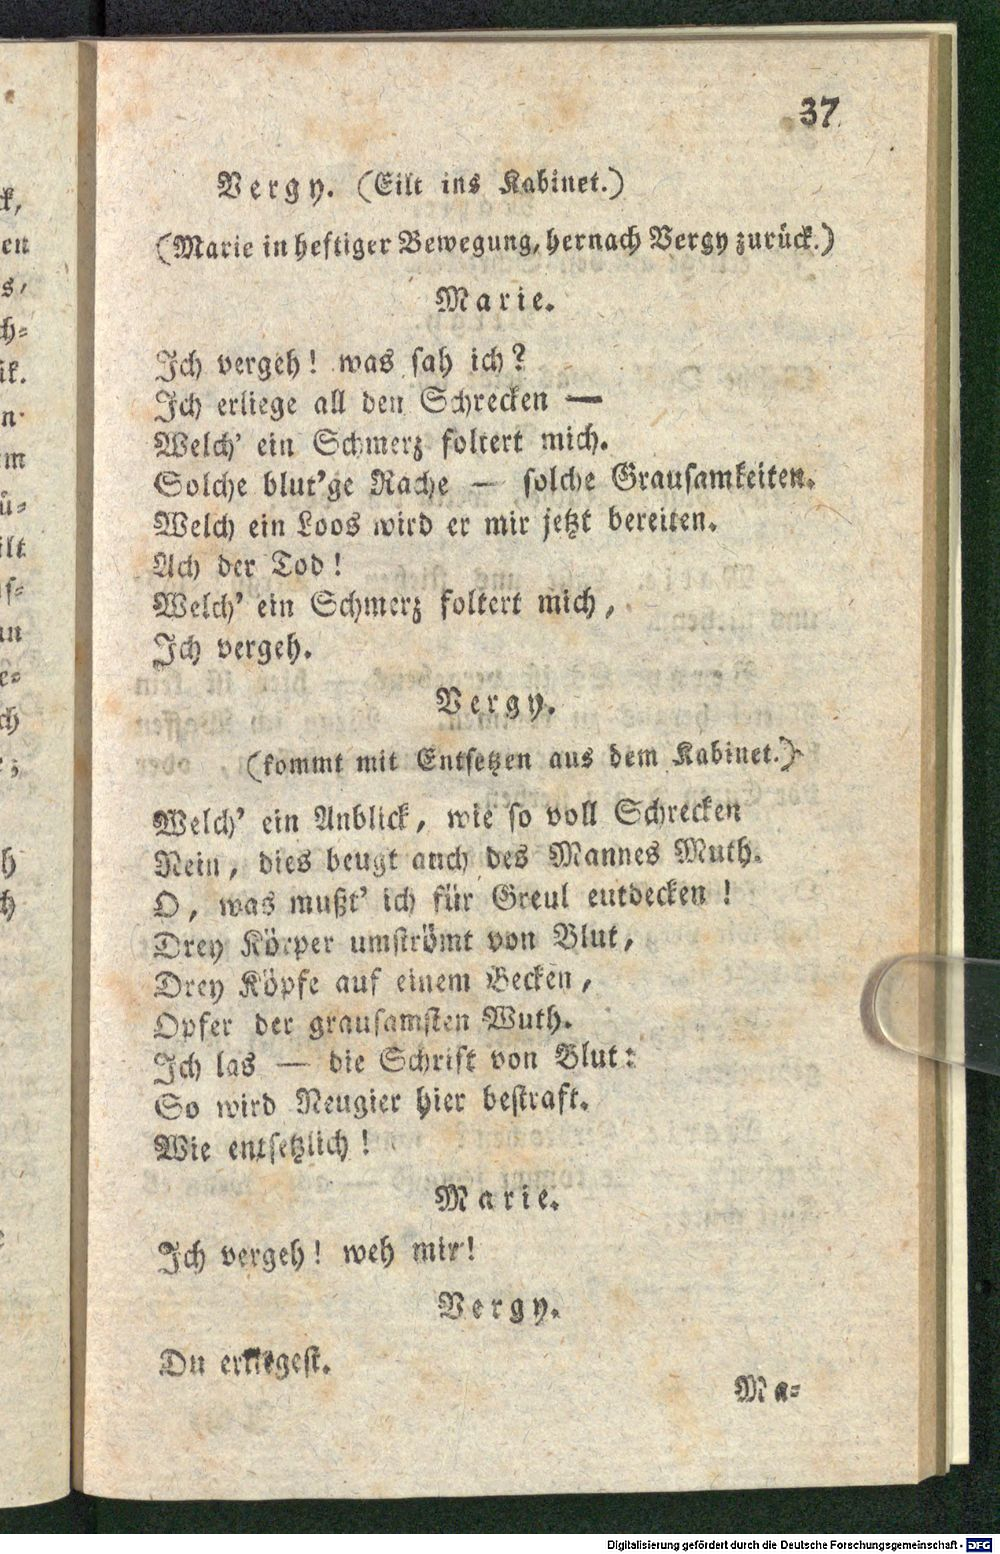 37
Vergy. (Eilt ins Kabinet.)
(Marie in heftiger Bewegung, hernach Vergy zurück.)
Marie.
Ich vergeh! was sah ich?
Ich erliege all den Schrecken —
Welch' ein Schmerz foltert mich.
Solche blut'ge Rache — solche Grausamkeiten.
Welch ein Loos wird er mir jetzt bereiten.
Ach der Tod!
Welch' ein Schmerz foltert mich,
Ich vergeh.
Vergy.
(kommt mit Entsetzen aus dem Kabinet.)
Welch' ein Anblick, wie so voll Schrecken
Nein, dies beugt auch des Mannes Muth.
O, was mußt' ich für Greul entdecken!
Drey Körper umströmt von Blut,
Drey Köpfe auf einem Becken,
Opfer der grausamsten Wuth.
Ich las — die Schrift von Blut:
So wird Neugier hier bestraft.
Wie entsetzlich!
Marie.
Ich vergeh! weh mir!
Vergy.
Du erliegest.
Ma-
Digitalisierung gefördert durch die Deutsche Forschungsgemeinschaft - DFG